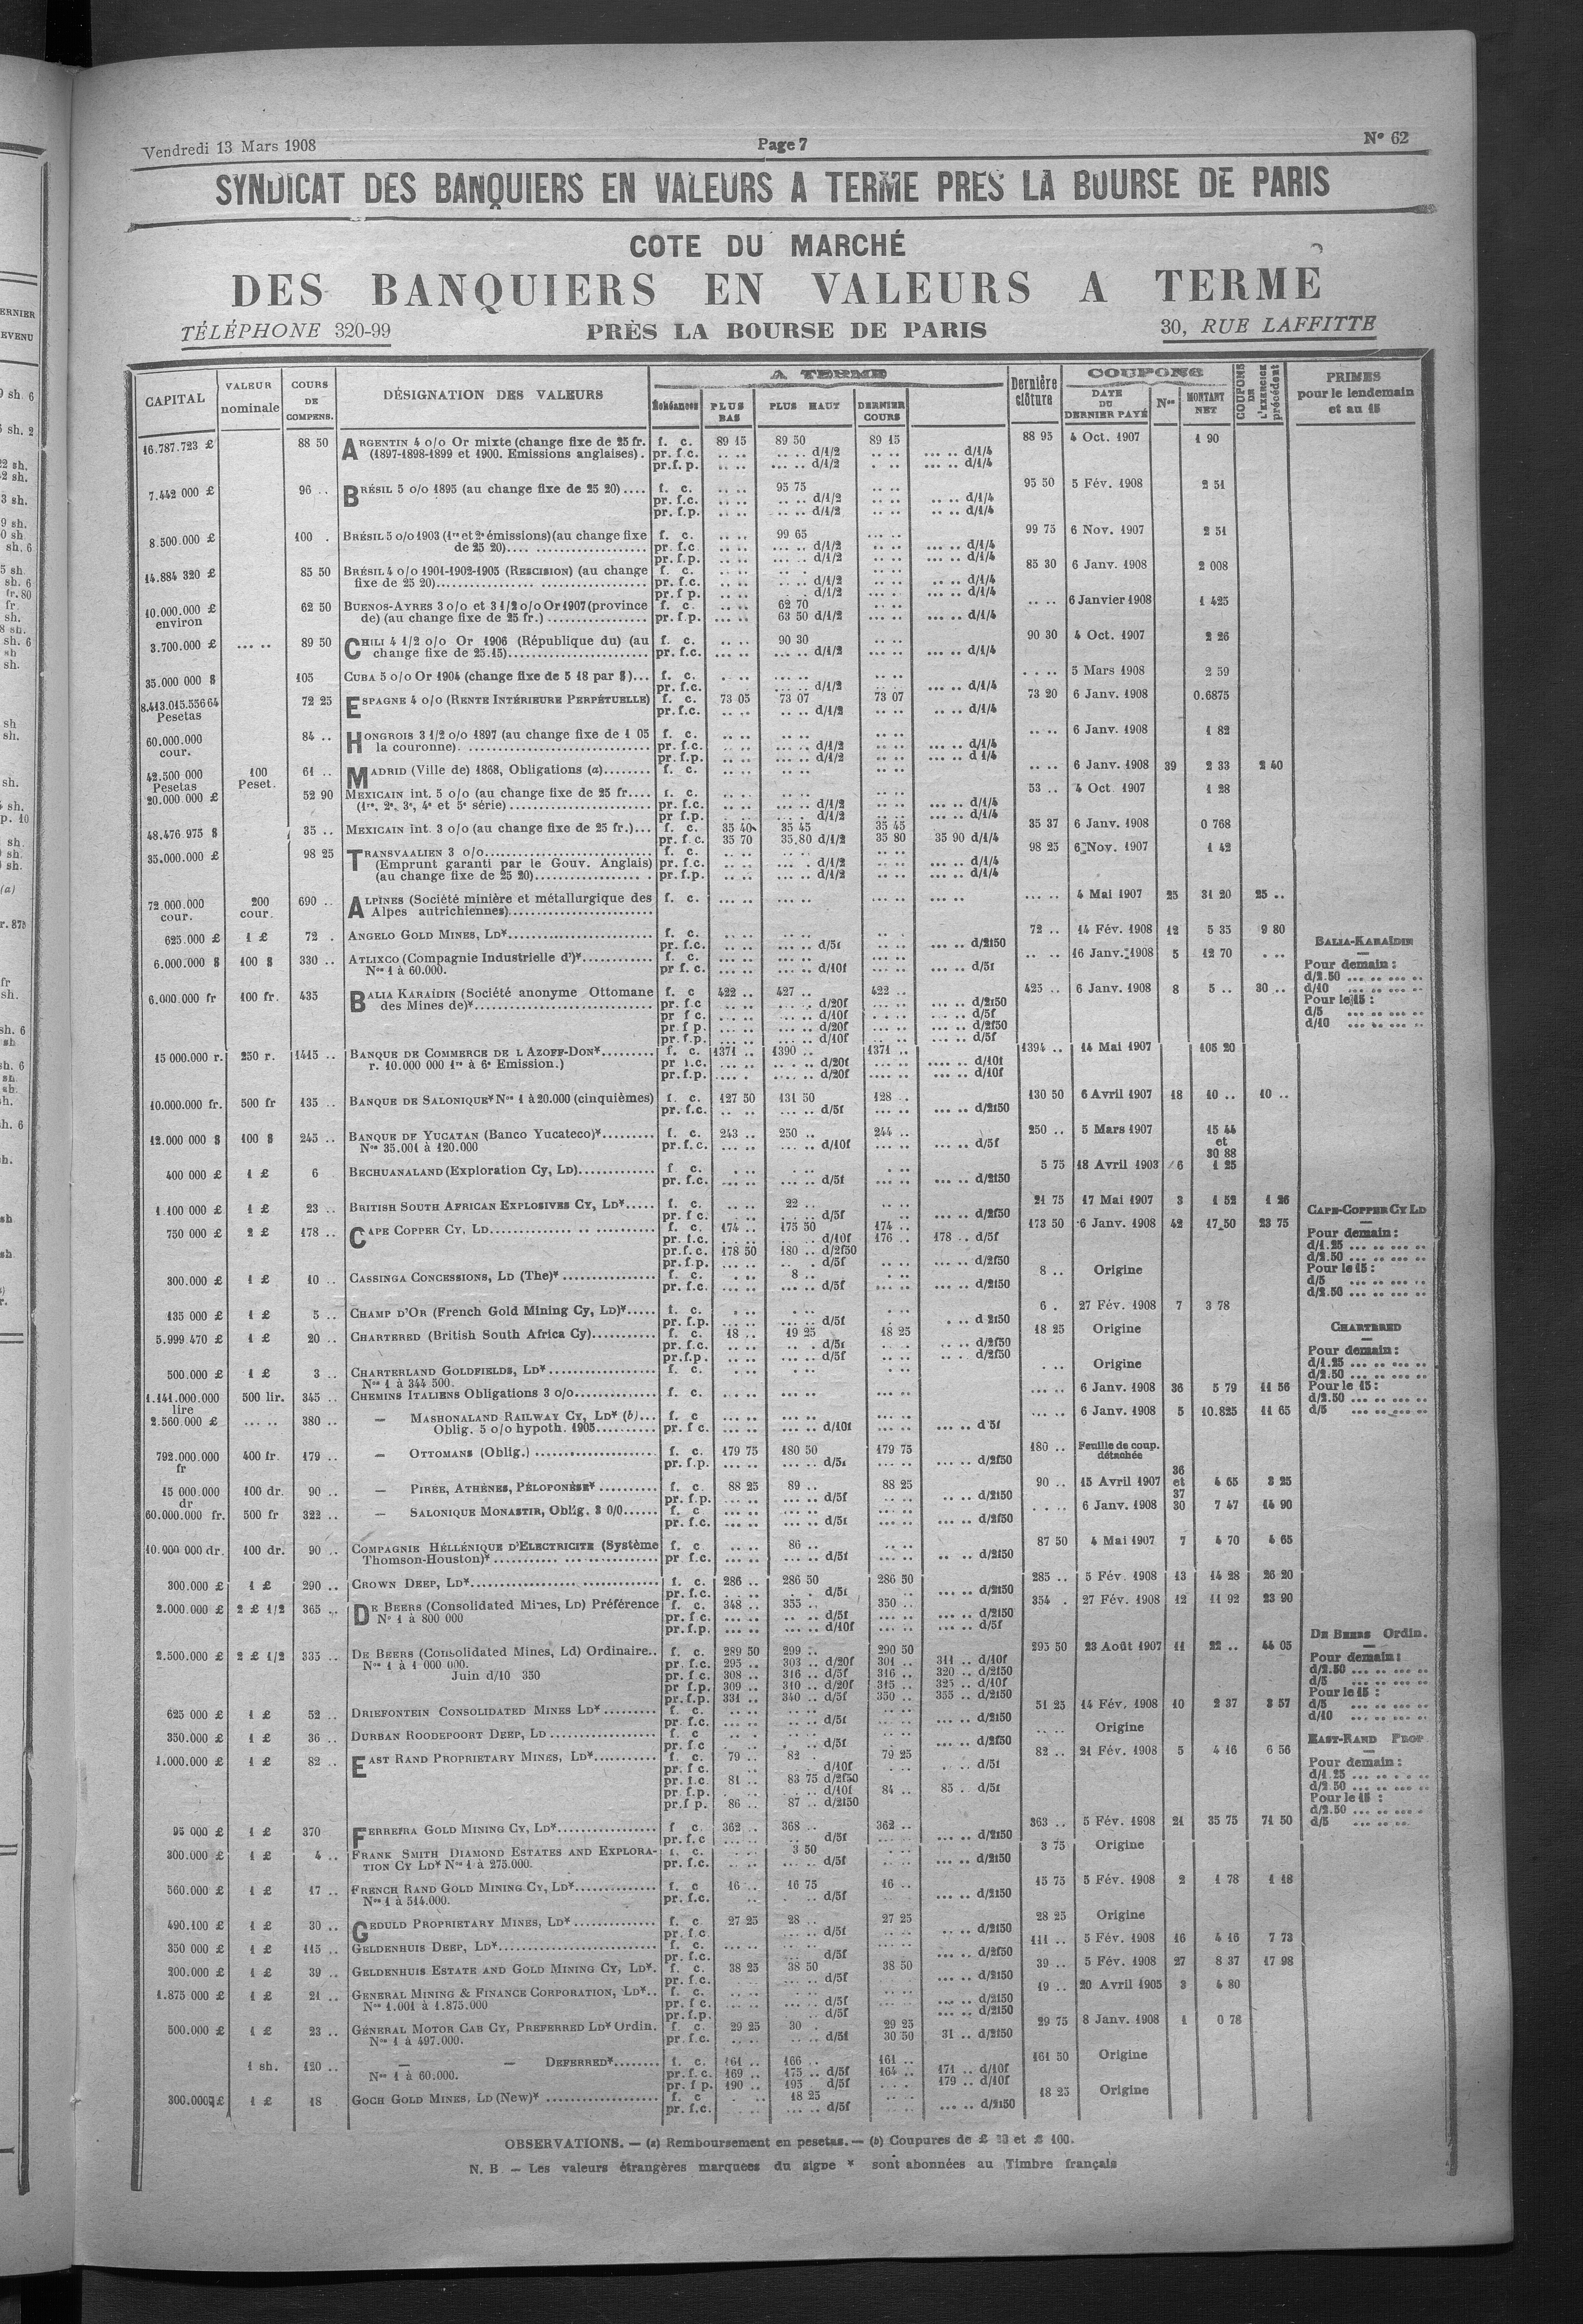 Vendredi 13 Mars 1908
Page 7
N° 62
SYNDICAT DES BANQUIERS EN VALEURS A TERME PRES LA BOURSE DE PARIS
COTE DU MARCHÉ
DES BANQUIERS EN VALEURS A TERME
TÉLÉPHONE 320-99
PRÈS LA BOURSE DE PARIS
30, RUE LAFFITTE
CAPITAL
VALEUR nominale
COURS DE COMPENS.
DÉSIGNATION DES VALEURS
A TERME
Échéances
PLUS BAS
PLUS HAUT
DERNIER COURS
Dernière clôture
COUPONS
DATE DU DERNIER PAYÉ
Nos
MONTANT NET
COUPONS DE L'EXERCICE précédent
PRIMES pour le lendemain et au 15
16.787.723 £ 88 50 ARGENTIN 4 o/o Or mixte (change fixe de 25 fr. f. c. 89 15 89 50 89 15 88 95 4 Oct. 1907 1 90
(1897-1898-1899 et 1900. Emissions anglaises). pr. f.c. .. .. .... .. d/1/2 .. .. ... .. d/1/4
pr.f. p. .. .. ... .. d/1/2 .. .. ... .. d/1/4
7.442 000 £ 96 .. BRÉSIL 5 o/o 1895 (au change fixe de 25 20).... f. c. .. .. 95 75 .. .. 95 50 5 Fév. 1908 2 51
pr. f.c. .. .. .. .. d/1/2 .. .. .. .. d/1/4
pr. f.p. .. .. .. .. d/1/2 .. .. .. .. d/1/4
8.500.000 £ 100 . BRÉSIL 5 o/o 1903 (1re et 2e émissions)(au change fixe f. c. .. .. 99 65 ... .. 99 75 6 Nov. 1907 2 51
de 25 20).... pr. f.c .. .. ... .. d/1/2 .. .. ... .. d/1/4
pr. f.p. .. .. .. .. d/1/2 .. .. ... .. d/1/4
14.884 320 £ 85 50 BRÉSIL 4 o/o 1901-1902-1905 (RESCISION) (au change f. c. .. .. .. .. .. .. 85 30 6 Janv. 1908 2 008
fixe de 25 20).... pr. f.c. .. .. d/1/2 .. .. .. .. d/1/4
pr. f p. .. .. d/1/2 .. .. ... .. d/1/4
10.000.000 £ environ 62 50 BUENOS-AYRES 3 o/o et 3 1/2 o/o Or 1907 (province f. c. .. .. 62 70 .. .. .. .. 6 Janvier 1908 1 425
de) (au change fixe de 25 fr.).... pr. f.p. ... .. 63 50 d/1/2 .. .. ... .. d/1/4
3.700.000 £ ... .. 89 50 CHILI 4 1/2 o/o Or 1906 (République du) (au f. c. .. .. 90 30 .. .. 90 30 4 Oct. 1907 2 26
change fixe de 25.15).... pr. f.c. ... .. ... .. d/1/2 .. .. ... .. d/1/4
35.000 000 $ 105 CUBA 5 o/o Or 1904 (change fixe de 5 18 par $)... f. c. .. .. ... .. .. .. . . .. 5 Mars 1908 2 59
pr. f.c. .. .. ... .. d/1/2 .. .. ... .. d/1/4
8.413.015.556 64 Pesetas 72 25 ESPAGNE 4 o/o (RENTE INTÉRIEURE PERPÉTUELLE) f. c. 73 05 73 07 73 07 73 20 6 Janv. 1908 0.6875
pr. f.c. .. .. .. .. d/1/2 .. .. .. .. d/1/4
60.000.000 cour. 84 .. HONGROIS 3 1/2 o/o 1897 (au change fixe de 1 05 f. c. .. .. .. .. .. .. .. .. 6 Janv. 1908 1 82
la couronne). .... pr. f.c. .. .. ... .. d/1/2 .. .. ... .. d/1/4
pr. f.p. .. .. ... .. d/1/2 .. .. ... .. d 1/4
42.500 000 Pesetas 100 Peset. 61 .. MADRID (Ville de) 1868, Obligations (a)........ f. c. .. .. .. .. .. .. .. .. 6 Janv. 1908 39 2 33 2 40
20.000.000 £ 52 90 MEXICAIN int. 5 o/o (au change fixe de 25 fr.... f. c. .. .. .. .. .. .. 53 .. 4 Oct. 1907 1 28
(1re, 2e, 3e, 4e et 5e série).... pr. f.c. .. .. ... .. d/1/2 .. .. ... .. d/1/4
pr f.p. .. .. .. .. d/1/2 .. .. ... .. d/1/4
48.476.975 $ 35 .. MEXICAIN int. 3 o/o (au change fixe de 25 fr.)... f. c. 35 40 35 45 35 45 35 37 6 Janv. 1908 0 768
pr. f. c. 35 70 35.80 d/1/2 35 80 35 90 d/1/4
35.000.000 £ 98 25 TRANSVAALIEN 3 o/o.... f. c. .. .. .. .. .. .. 98 25 6 Nov. 1907 1 42
(Emprunt garanti par le Gouv. Anglais) pr. f.c. .. .. ... . d/1/2 .. .. ... .. d/1/4
(au change fixe de 25 20).... pr. f.p. .. .. ... .. d/1/2 .. .. ... .. d/1/4
72.000.000 cour. 200 cour. 690 .. ALPINES (Société minière et métallurgique des f. c. ... .. ... .. ... .. ... .. ... .. 4 Mai 1907 25 31 20 25 ..
Alpes autrichiennes)....
625.000 £ 1 £ 72 . ANGELO GOLD MINES, LD*.... f. c. .. .. .. .. .. . 72 .. 14 Fév. 1908 12 5 35 9 80
pr. f.c. .. .. ... .. d/5f .. .. ... .. d/2f50
6.000.000 $ 100 $ 330 .. ATLIXCO (Compagnie Industrielle d')*.... f. c. ... .. ... .. ... .. .. .. 16 Janv. 1908 5 12 70 . ..
Nos 1 à 60.000. pr f. c. ... .. ... .. d/10f ... .. ... .. d/5f
BALIA-KARAÏDIN
Pour demain :
d/2.50 ... .. ... ..
d/10 ... .. ... ..
Pour le 15 :
d/5 ... .. ... ..
d/10 ... .. ... ..
6.000.000 fr 100 fr. 435 BALIA KARAÏDIN (Société anonyme Ottomane f. c 422 .. 427 .. 422 .. 425 .. 6 Janv. 1908 8 5 .. 30 ..
des Mines de)*.... pr. f.c ... .. ... .. d/20f ... .. ... .. d/2f50
pr f c. ... .. ... .. d/10f ... .. ... .. d/5f
pr f p. ... .. ... .. d/20f ... .. ... .. d/2f50
pr. f.p. ... .. ... .. d/10f ... .. ... .. d/5f
15 000.000 r. 250 r. 1415 .. BANQUE DE COMMERCE DE L AZOFF-DON*.... f. c. 1371 .. 1390 .. 1371 .. 1394 .. 14 Mai 1907 105 20
r. 10.000 000 1re à 6e Emission.) pr f.c. .... .. .. .. d/20f .... .. .... .. d/10f
pr.f.p. .... . .... .. d/20f .... .. .... .. d/10f
10.000.000 fr. 500 fr 135 .. BANQUE DE SALONIQUE* Nos 1 à 20.000 (cinquièmes) f. c. 127 50 131 50 128 .. 130 50 6 Avril 1907 18 10 .. 10 ..
pr. f.c. .. .. ... .. d/5f .. .. ... .. d/2f50
12.000 000 $ 100 $ 245 .. BANQUE DE YUCATAN (Banco Yucateco)*.... f. c. 243 .. 250 .. 244 .. 250 .. 5 Mars 1907 15 44 et 30 88
Nos 35.001 à 120.000 pr. f. c. ... .. ... .. d/10f ... .. ... .. d/5f
400 000 £ 1 £ 6 BECHUANALAND (Exploration Cy, LD).... f c. . .. . .. . .. 5 75 18 Avril 1903 6 1 25
pr. f.c. ... .. ... .. d/5f ... .. ... .. d/2f50
1.100 000 £ 1 £ 23 .. BRITISH SOUTH AFRICAN EXPLOSIVES CY, LD*.... f. c. .. .. 22 .. .. .. 21 75 17 Mai 1907 3 1 52 1 26
pr. f c. .. .. ... .. d/5f .. .. ... .. d/2f50
CAPE-COPPER CY LD
Pour demain :
d/1.25 ... .. ... ..
d/2.50 ... .. ... ..
Pour le 15 :
d/5 ... .. ... ..
d/2.50 ... .. ... ..
750 000 £ 2 £ 178 .. CAPE COPPER CY, LD.... f. c. 174 .. 175 50 174 .. 173 50 6 Janv. 1908 42 17.50 23 75
pr. f.c. .. .. .. .. d/10f 176 .. 178 .. d/5f
pr.f. c. 178 50 180 .. d/2f50
pr. f.p. ... .. .. . d/5f ... .. ... .. d/2f50
300.000 £ 1 £ 10 .. CASSINGA CONCESSIONS, LD (The)*.... f. c. . .. 8 .. . .. 8 .. Origine
pr. f.c. ... .. ... .. d/5f ... .. ... .. d/2f50
135 000 £ 1 £ 5 .. CHAMP D'OR (French Gold Mining Cy, LD)*.... f. c. . .. . .. . .. 6 . 27 Fév. 1908 7 3 78
pr. f.p. ... .. ... .. d/5f . .. .. . d 2f50
CHARTERED
Pour demain :
d/1.25 ... .. ... ..
d/2.50 ... .. ... ..
Pour le 15 :
d/2.50 ... .. ... ..
d/5 ... .. ... ..
5.999 470 £ 1 £ 20 .. CHARTERED (British South Africa Cy).... f. c. 18 .. 19 25 18 25 18 25 Origine
pr. f.c. .. .. .. . d/5f . .. .. .. d/2f50
pr.f.p. .. .. ... .. d/5f .. .. .. . d/2f50
500.000 £ 1 £ 3 .. CHARTERLAND GOLDFIELDS, LD*.... f. c. . .. . .. ... .. . .. Origine
Nos 1 à 344 500.
1.141.000.000 lire 500 lir. 345 .. CHEMINS ITALIENS Obligations 3 o/o.... f. c. ... .. ... .. ... .. ... .. 6 Janv. 1908 36 5 79 11 56
2.560.000 £ ... .. 380 .. — MASHONALAND RAILWAY CY, LD* (b)... f. c ... .. ... .. ... .. ... .. 6 Janv. 1908 5 10.825 11 65
Oblig. 5 o/o hypoth. 1905.... pr. f c. ... .. ... .. d/10f ... .. ... .. d 5f
792.000.000 fr 400 fr. 479 .. — OTTOMANS (Oblig.).... f. c. 179 75 180 50 179 75 180 .. Feuille de coup. détachée
pr. f.p. ... .. ... .. d/5f ... .. ... .. d/2f50
15 000.000 dr 100 dr. 90 .. — PIRÉE, ATHÈNES, PÉLOPONÈSE*.... f. c. 88 25 89 .. 88 25 90 .. 15 Avril 1907 36 et 37 4 65 3 25
pr. f.p. ... .. ... .. d/5f .. .. .. .. d/2f50
60.000.000 fr. 500 fr 322 .. — SALONIQUE MONASTIR, Oblig. 3 0/0.... f. c ... .. ... .. ... .. . . .. 6 Janv. 1908 30 7 47 14 90
pr. f.c. ... .. ... .. d/5f ... .. ... .. d/2f50
10.900 000 dr. 100 dr. 90 .. COMPAGNIE HÉLLÉNIQUE D'ELECTRICITE (Système f. c .. .. 86 .. .. .. 87 50 4 Mai 1907 7 4 70 4 65
Thomson-Houston)*.... pr f.c. ... .. ... .. d/5f .. .. .. .. d/2f50
300.000 £ 1 £ 290 .. CROWN DEEP, LD*.... f. c. 286 .. 286 50 286 50 285 .. 5 Fév. 1908 13 14 28 26 20
pr. f.c. . .. .. .. d/5f .. .. ... .. d/2f50
2.000.000 £ 2 £ 1/2 365 .. DE BEERS (Consolidated Mines, LD) Préférence f. c. 348 .. 355 .. 350 .. 354 . 27 Fév. 1908 12 11 92 23 90
Nos 1 à 800 000 pr. f c. ... .. ... .. d/5f ... .. ... .. d/2f50
pr. f.p. ... .. ... .. d/10f ... .. ... .. d/5f
DE BEERS Ordin.
Pour demain :
d/2.50 ... .. ... ..
d/5 ... .. ... ..
Pour le 15 :
d/5 ... .. ... ..
d/10 ... .. ... ..
2.500.000 £ 2 £ 1/2 335 .. DE BEERS (Consolidated Mines, Ld) Ordinaire.. f. c. 289 50 299 .. 290 50 295 50 23 Août 1907 11 22 .. 44 05
Nos 1 à 1 000 000. pr. f.c. 295 .. 303 .. d/20f 301 .. 311 .. d/10f
Juin d/10 350 pr. f c 308 .. 316 .. d/5f 316 .. 320 .. d/2f50
pr f.p. 309 .. 310 .. d/20f 315 .. 325 .. d/10f
pr. f.p. 331 .. 340 .. d/5f 350 .. 355 .. d/2f50
625 000 £ 1 £ 52 .. DRIEFONTEIN CONSOLIDATED MINES LD*.... f. c. .. .. .. .. .. .. 51 25 14 Fév. 1908 10 2 37 3 57
pr. f.c. ... .. ... .. d/5f ... .. ... .. d/2f50
350.000 £ 1 £ 36 .. DURBAN ROODEPOORT DEEP, LD.... f. c .. .. .. .. .. .. .. .. Origine
pr. f.c . .. . . d/5f .. .. ... .. d/2f50
EAST-RAND PROP.
Pour demain :
d/1.25 ... .. . . ..
d/2.50 ... .. ... ..
Pour le 15 :
d/2.50 ... .. ... .
d/5 ... .. ..
1.000.000 £ 1 £ 82 .. EAST RAND PROPRIETARY MINES, LD*.... f. c. 79 .. 82 . 79 25 82 .. 21 Fév. 1908 5 4 16 6 56
pr. f c. .. .. d/10f . .. . .. d/5f
pr. f.c. 81 .. 83 75 d/2f50
pr. f.p. .. . .. d/10f 84 .. 85 . d/5f
pr.f p. 86 .. 87 .. d/2f50
95 000 £ 1 £ 370 FERREIRA GOLD MINING CY, LD*.... f c. 362 .. 368 .. 362 .. 363 .. 5 Fév. 1908 21 35 75 71 50
pr. f.c ... .. .. d/5f ... .. ... .. d/2f50
300.000 £ 1 £ 4 .. FRANK SMITH DIAMOND ESTATES AND EXPLORA- f. c. . .. 3 50 . .. 3 75 Origine
TION CY LD* Nos 1 à 275.000. pr. f.c. .. .. ... .. d/5f .. .. ... .. d/2f50
560.000 £ 1 £ 17 .. FRENCH RAND GOLD MINING CY, LD*.... f. c 16 .. 16 75 16 .. 15 75 5 Fév. 1908 2 1 78 1 18
Nos 1 à 514.000. pr. f.c. .. . .. d/5f ... .. d/2f50
490.100 £ 1 £ 30 .. GEDULD PROPRIETARY MINES, LD*.... f. c. 27 25 28 .. 27 25 28 25 Origine
pr. f.c. .. .. ... .. d/5f .. .. .. .. d/2f50
350 000 £ 1 £ 115 .. GELDENHUIS DEEP, LD*.... f. c. ... .. ... .. .. .. 111 .. 5 Fév. 1908 16 4 16 7 73
pr. f.c. .. .. d/5f .. .. ... .. d/2f50
200.000 £ 1 £ 39 .. GELDENHUIS ESTATE AND GOLD MINING CY, LD*. f. c. 38 25 38 50 38 50 39 .. 5 Fév. 1908 27 8 37 17 98
pr. f.c. .. .. ... .. d/5f .. .. ... .. d/2f50
1.875 000 £ 1 £ 21 .. GENERAL MINING & FINANCE CORPORATION, LD*.. f. c. .. .. .. .. .. .. 19 .. 20 Avril 1905 3 4 80
Nos 1.001 à 1.875.000 pr. f c. .. .. ... .. d/5f .. .. ... .. d/2f50
pr.f.p. .. .. .. .. d/5f .. .. ... .. d/2f50
500.000 £ 1 £ 23 .. GÉNERAL MOTOR CAB CY, PREFERRED LD* Ordin. f. c. 29 25 30 . 29 25 29 75 8 Janv. 1908 1 0 78
Nos 1 à 497.000. pr. f.c. .. .. .. .. d/5f 30 50 31 .. d/2f50
1 sh. 120 .. — — DEFERRED*.... f. c. 161 .. 166 .. 161 .. 161 50 Origine
Nos 1 à 60.000. pr. f. c. 169 .. 175 .. d/5f 164 .. 171 .. d/10f
pr. f p. 190 .. 195 d/5f .. .. 179 .. d/10f
300.000 £ 1 £ 18 GOCH GOLD MINES, LD (New)*.... f. c .. .. 18 25 .. .. 18 25 Origine
pr. f.c. .. .. ... .. d/5f .. .. ... .. d/2f50
OBSERVATIONS. — (a) Remboursement en pesetas. — (b) Coupures de £ 20 et £ 100.
N. B — Les valeurs étrangères marquées du signe * sont abonnées au Timbre français